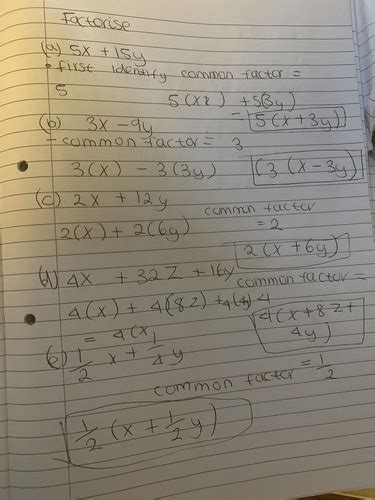 Factorise
(a) 5x + 15y
• first identify common factor =
5
5(x) + 5(3y)
= 5(x + 3y)
(b) 3x - 9y
- common factor = 3
3(x) - 3(3y) (3(x - 3y)
(c) 2x + 12y
common factor
= 2
2(x) + 2(6y)
2(x + 6y)
(d) 4x + 32z + 16y
common factor =
4
4(x) + 4(8z) + 4(4y)
4(x + 8z +
4y)
= 4(x
(e) 1/2 x + 1/4 y
common factor = 1/2
1/2 (x + 1/2 y)